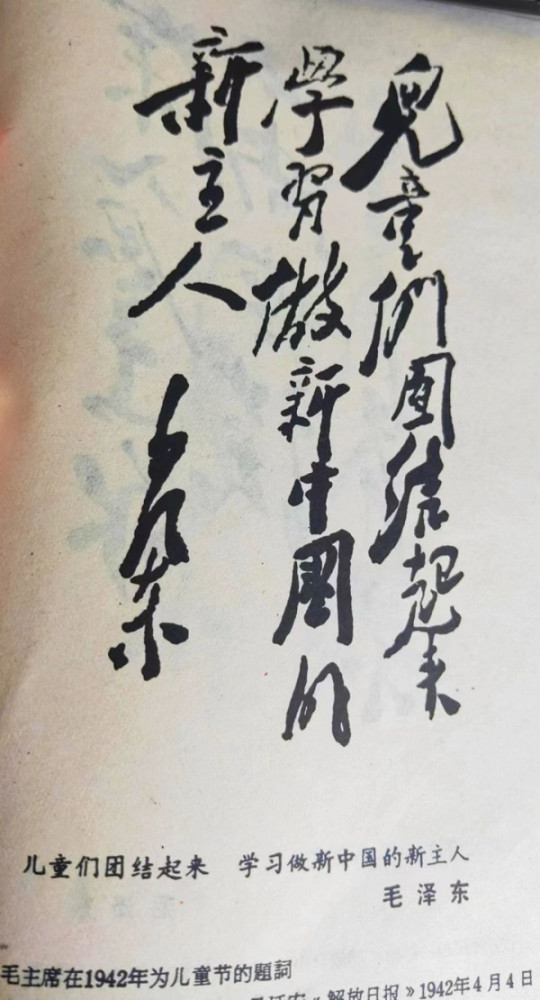 兒童们團结起来
學習做新中國的
新主人
毛泽东
儿童们团结起来　学习做新中国的新主人
毛 泽 东
毛主席在1942年为儿童节的題詞
延安《解放日报》1942年4月4日